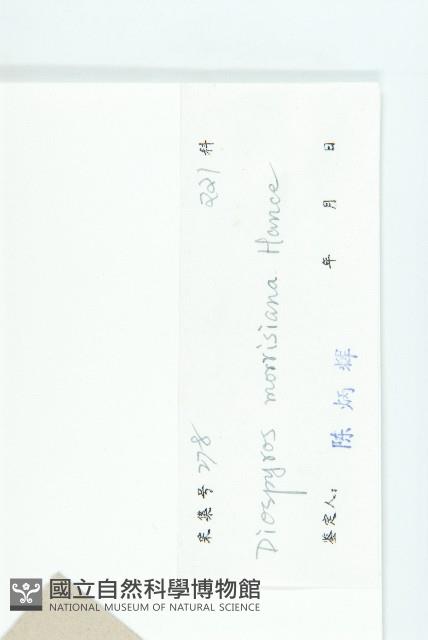 采集号 278 221 科
Diospyros morrisiana Hance
鉴定人: 陈炳辉 年 月 日
國立自然科學博物館
NATIONAL MUSEUM OF NATURAL SCIENCE